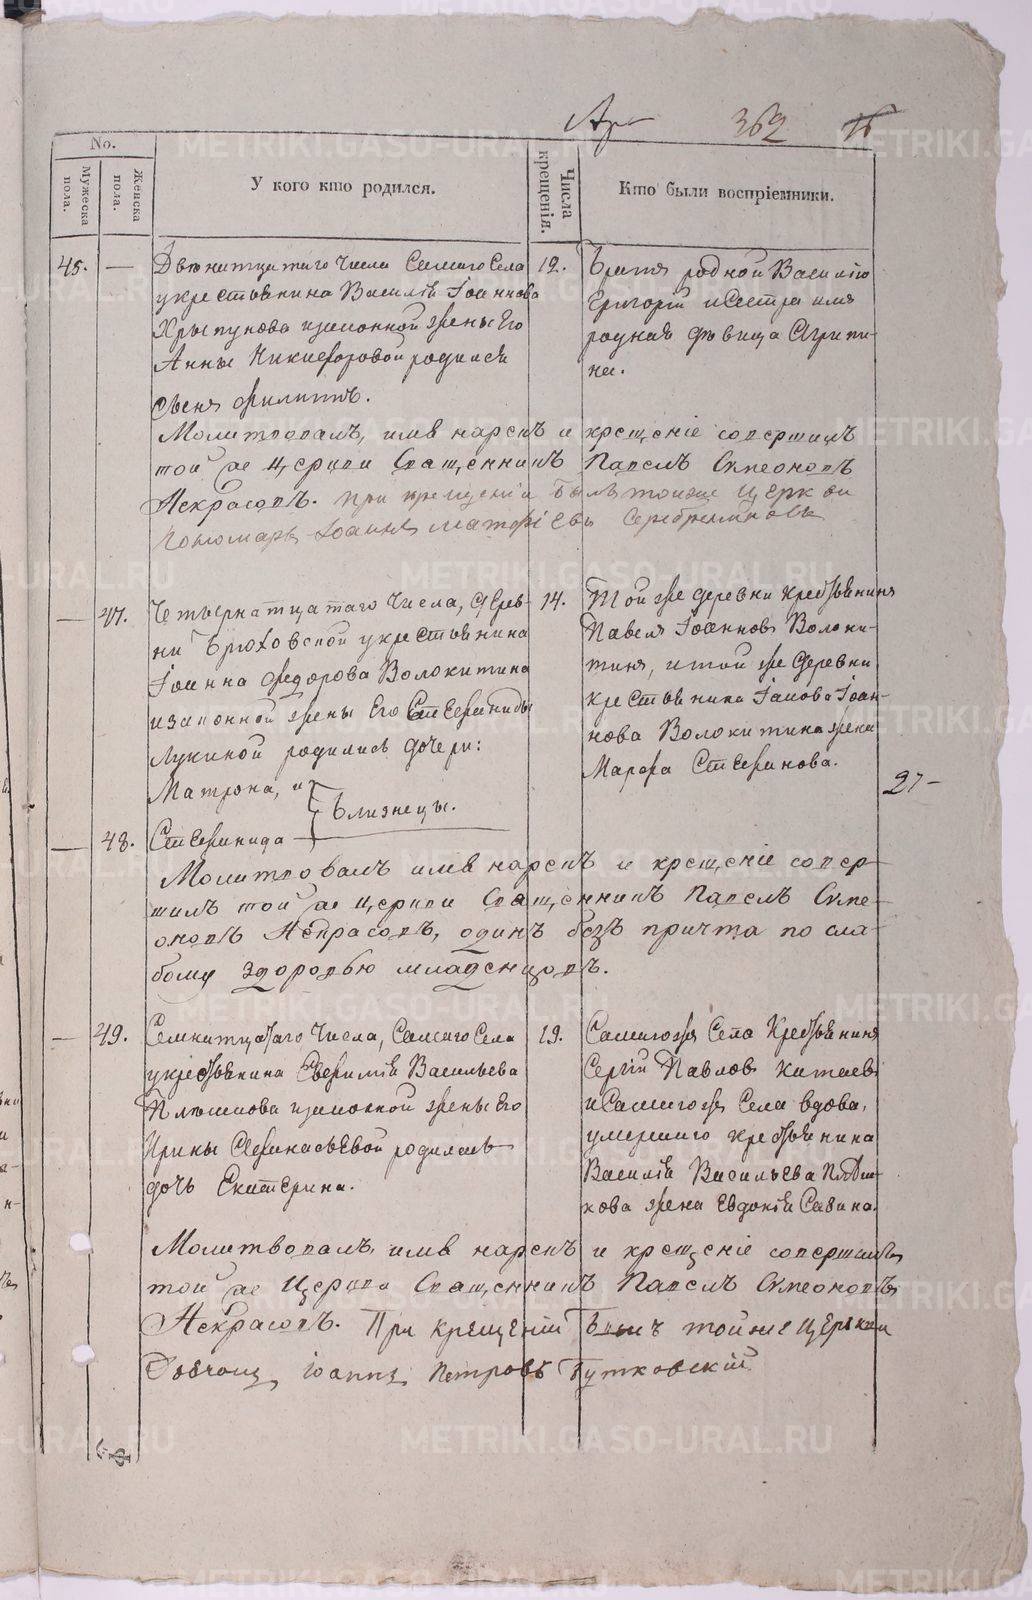 369 16
No.
Мужеска пола.
Женска пола.
У кого кто родился.
Числа крещенія.
Кто были воспріемники.
45. — Двенатцатаго числа Самаго Села
укрестьянина Василія Іоаннова
Хрыпунова изаконной жены Его
Анны Никифоровой родился
сынъ Филиппъ.
12. Братъ родной Василію
Григорій исестра имъ
родная дѣвица Агрипи-
на.
Молитвовалъ, имя нарекъ и крещеніе совершилъ
той же Церкви Священникъ Павелъ Симеоновъ
Некрасовъ. При крещеніи былъ тоиже Церкви
Пономарь Іоаннъ Матфіевъ Серебрениковъ
— 47. Четырнатцатаго числа, дерев-
ни Брюховской укрестьянина
Іоанна Федорова Волокитина
изаконной жены Его Стефаниды
Лукиной родились дочери:
Матрона, и
— 48. Стефанида
Близнецы.
14. Той же деревни крестьянинъ
Павелъ Іоанновъ Волоки-
тинъ, итой же деревни
крестьянина Іакова Іоан-
нова Волокитина жена
Марфа Стефанова.
27 —
Молитвовалъ имя нарекъ и крещеніе совер-
шилъ той же Церкви Священникъ Павелъ Симе-
оновъ Некрасовъ, одинъ безъ причта по сла-
бому здоровью младенцовъ.
— 49. Семнатцатаго числа, Самаго Села
укрестьянина Васильева
изаконной жены Его
Ирины Афанасьевой родилась
дочь Екатерина.
19. Самагожъ Села Крестьянинъ
Сергій Павловъ Китаевъ
иСамагожъ Села вдова,
умершаго крестьянина
Василія Васильева
жена Евдокія Савина.
Молитвовалъ, имя нарекъ и крещеніе совершилъ
той же Церкви Священникъ Павелъ Симеоновъ
Некрасовъ. При крещеніи былъ тойже Церкви
Іоаннъ Петровъ Бутковскій
METRIKI.GASO-URAL.RU